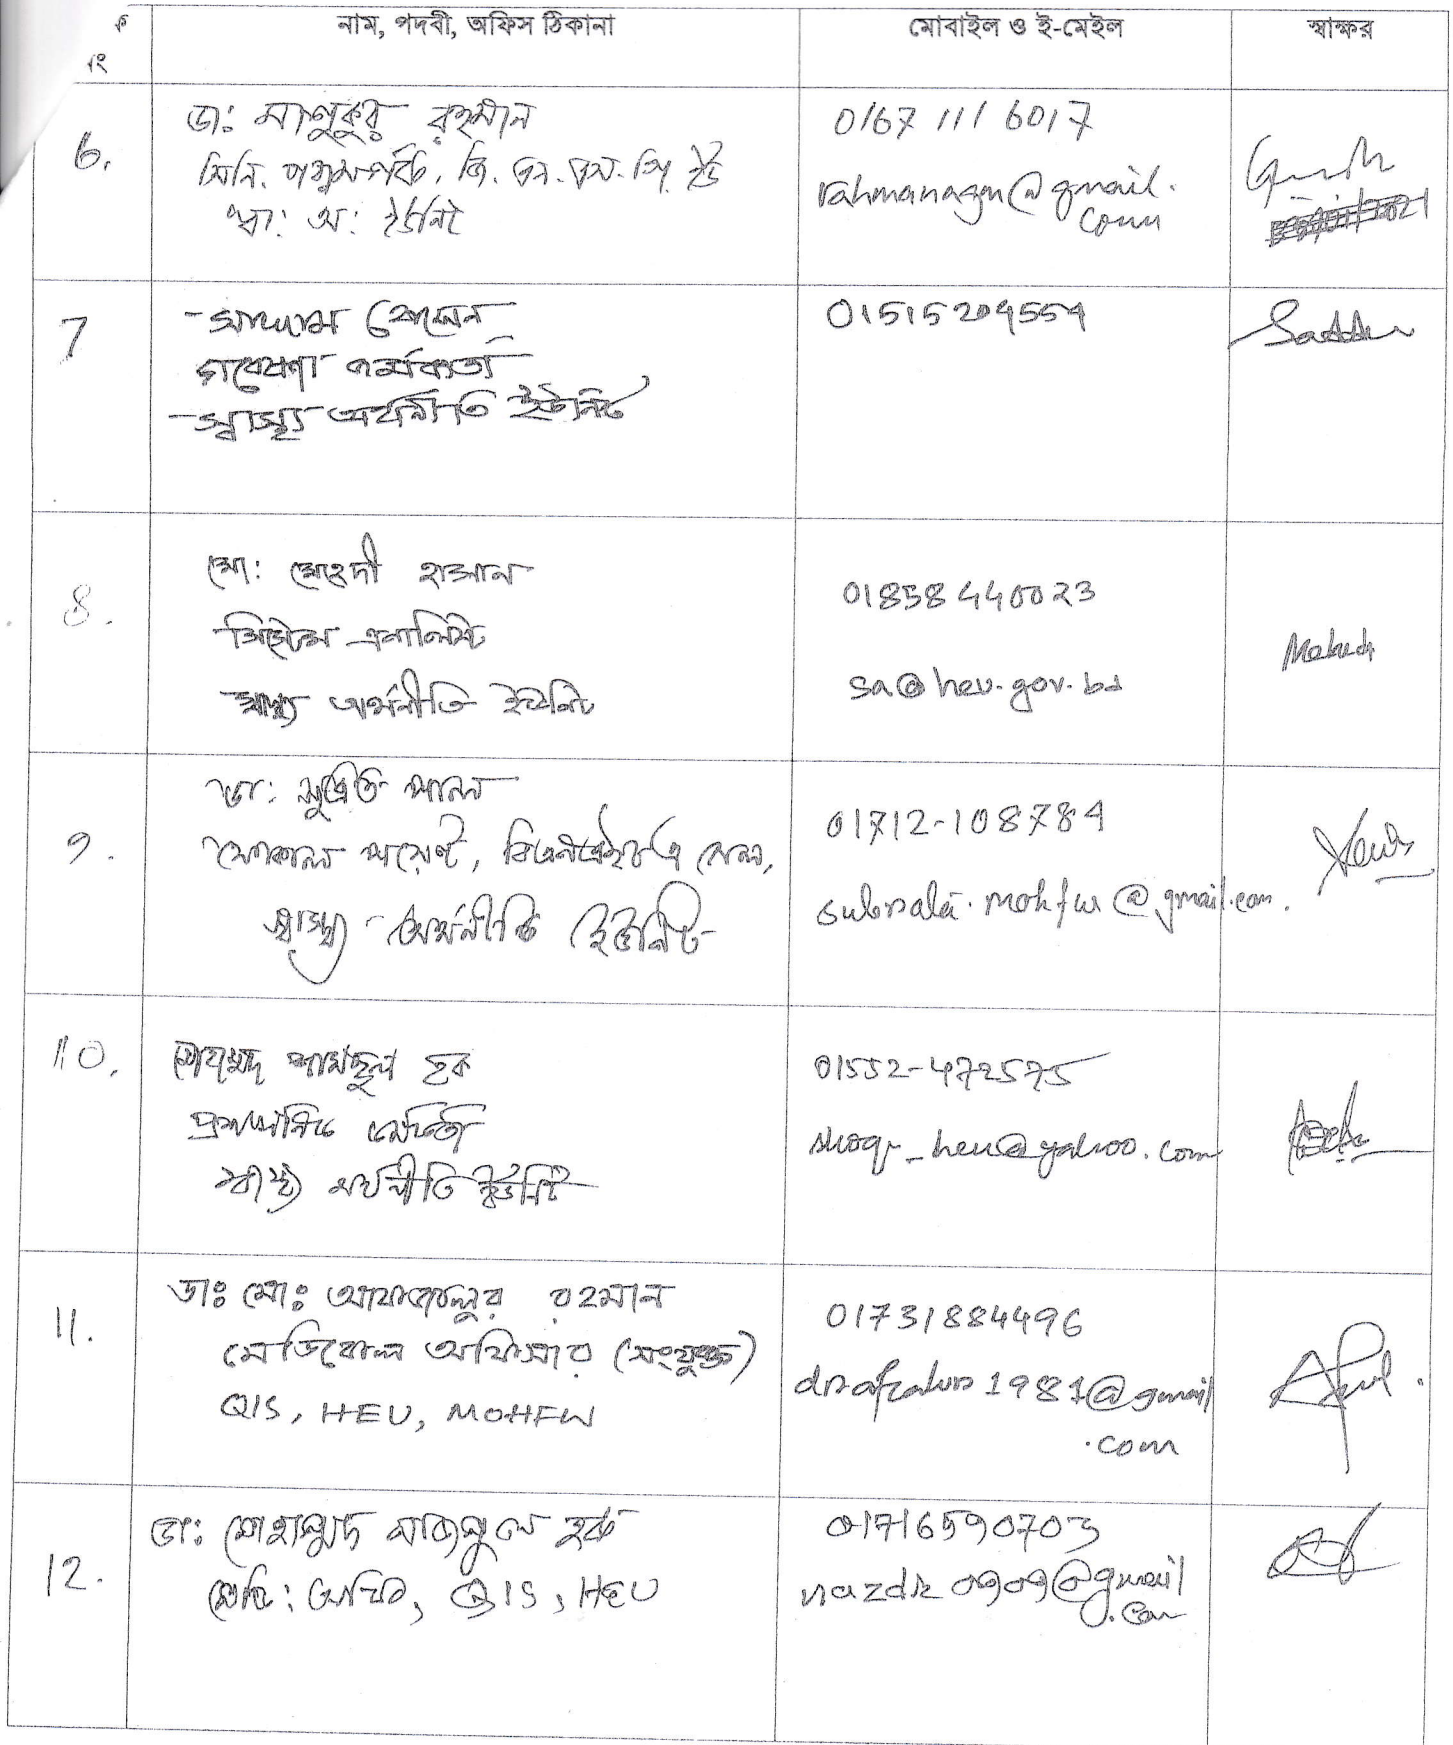 ক্র
নং
নাম, পদবী, অফিস ঠিকানা
মোবাইল ও ই-মেইল
স্বাক্ষর
6.
ডা: রহমান
সিনি. জি.
স্বা: অ: ইউনিট
0167 111 6017
rahmanagm@gmail.
com
7
সাদ্দাম হোসেন
গবেষণা কর্মকর্তা
স্বাস্থ্য অর্থনীতি ইউনিট
01515209559
8.
মো: মেহেদী হাসান
সিস্টেম এনালিস্ট
স্বাস্থ্য অর্থনীতি ইউনিট
01858440023
sa@heu.gov.bd
Mehedi
9.
ডা: সুব্রত পাল
ফোকাল পয়েন্ট, সেল,
স্বাস্থ্য অর্থনীতি ইউনিট
01712-108784
subrata.mohfw@gmail.com.
10.
মোহাম্মদ শামছুল হক
প্রশাসনিক কর্মকর্তা
স্বাস্থ্য অর্থনীতি ইউনিট
01552-472575
heu@yahoo.com
11.
ডাঃ মোঃ আফজালুর রহমান
মেডিকেল অফিসার (সংযুক্ত)
QIS, HEU, MOHFW
01731884496
drafzalur1981@gmail
.com
12.
ডা: মোহাম্মদ নাজমুল হক
মেডি: অফি:, QIS, HEU
01716590703
nazdr0909@gmail
.com